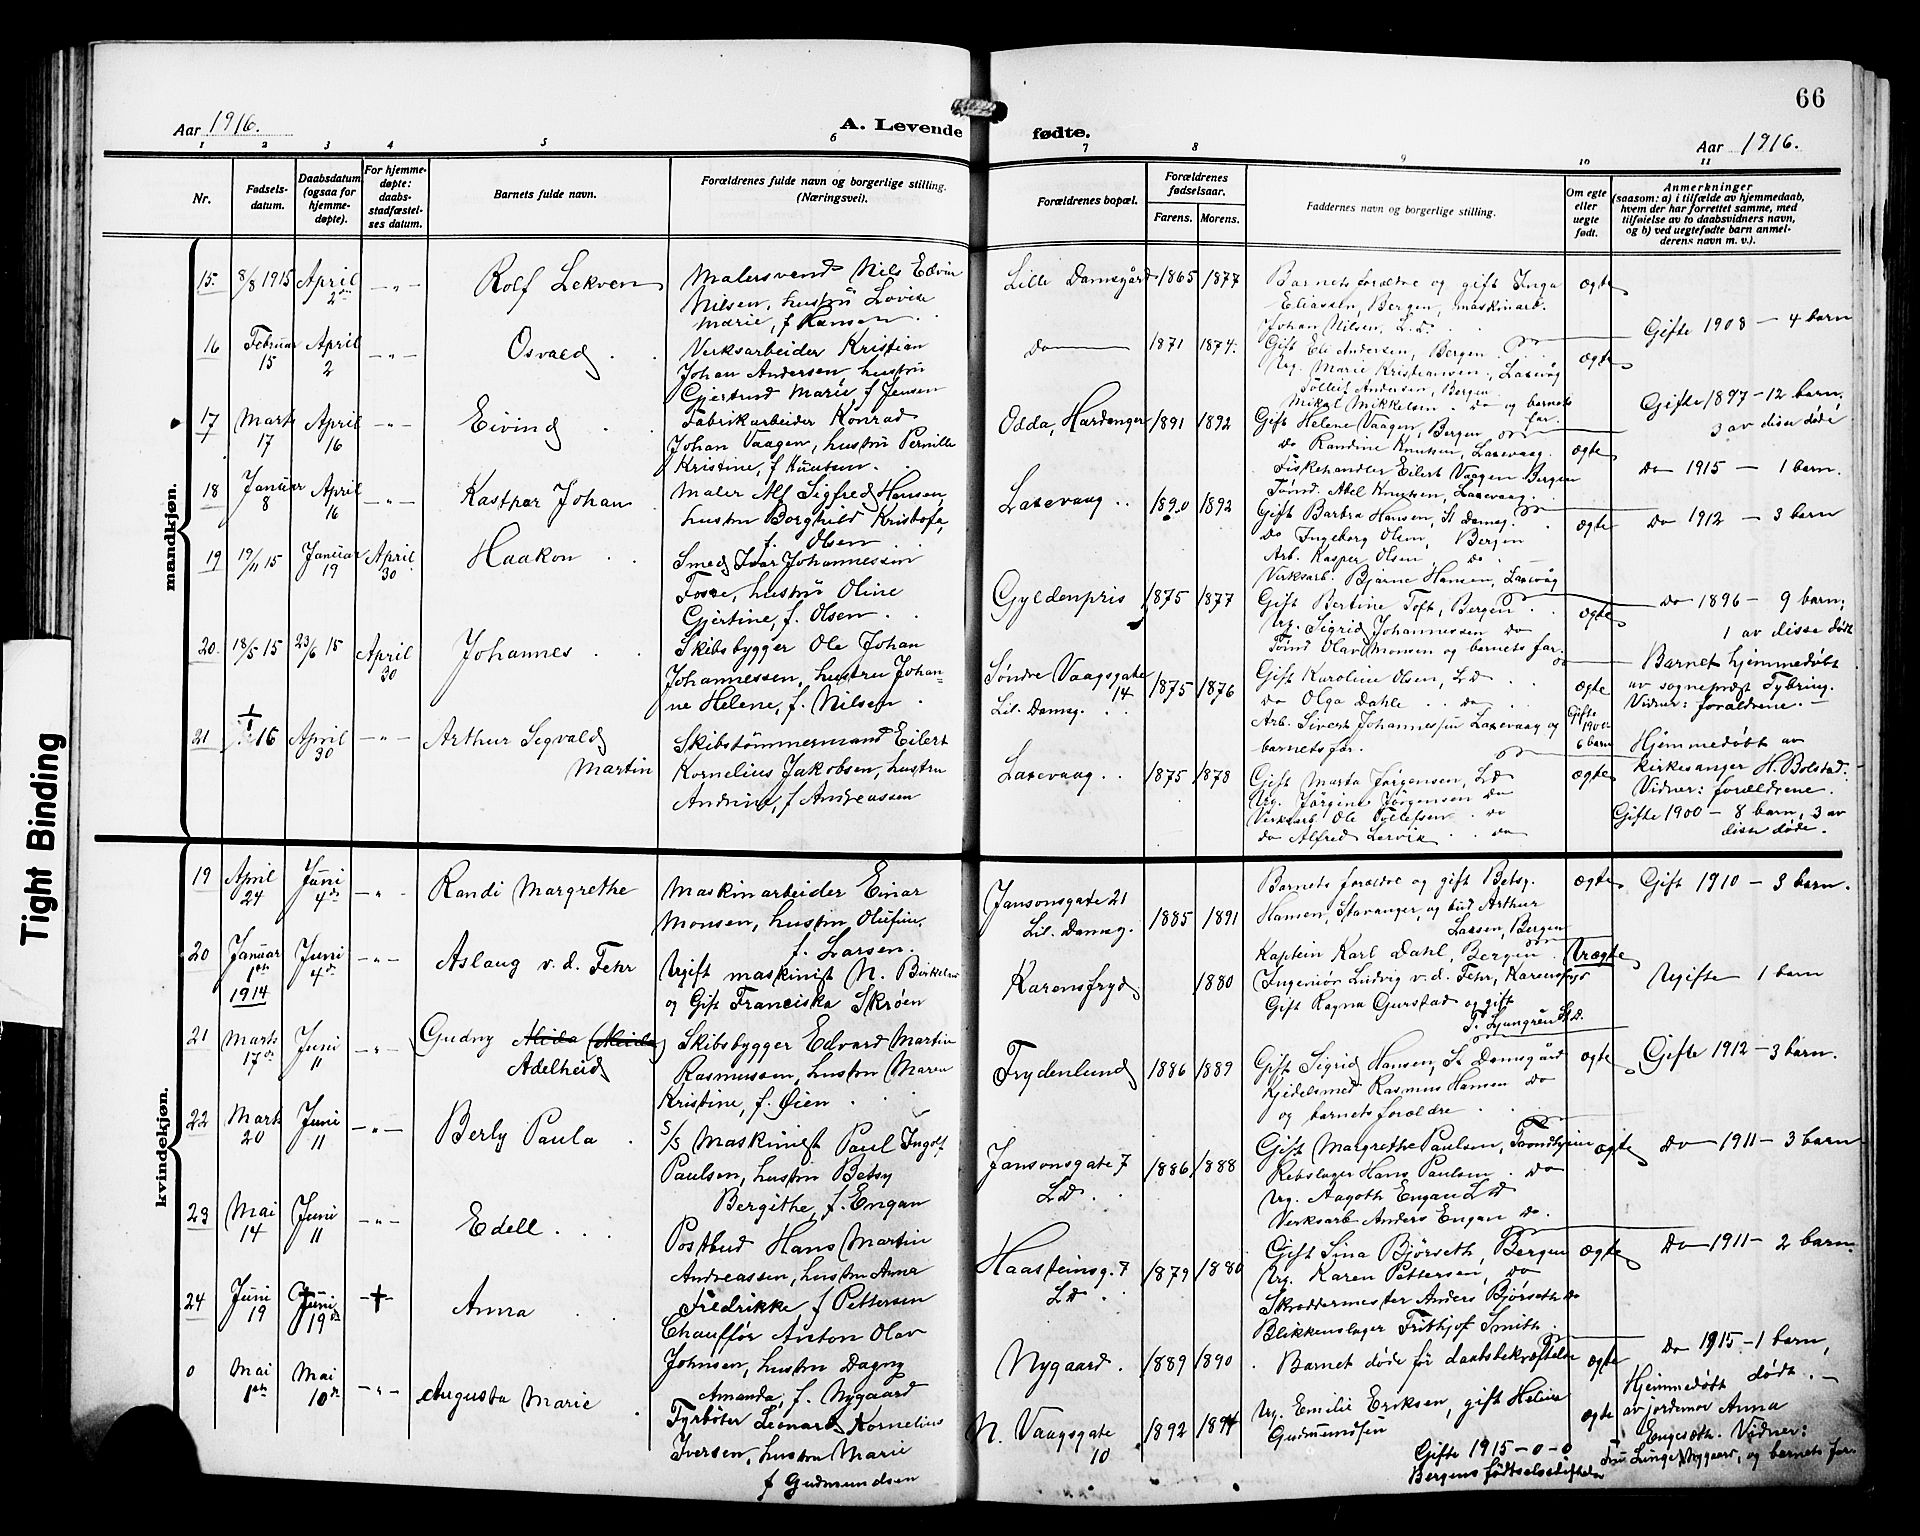 66
Aar 1916.
A. Levende fødte.
Aar 1916.
1 2 3 4 5 6 7 8 9 10 11
Nr.
Fødsels-
datum.
Daabsdatum
(ogsaa for
hjemme-
døpte).
For hjemme-
døpte:
daabs-
stadfæstel-
ses datum.
Barnets fulde navn.
Forældrenes fulde navn og borgerlige stilling.
(Næringsvei).
Forældrenes bopæl.
Forældrenes
fødselsaar.
Farens. Morens.
Faddernes navn og borgerlige stilling.
Om egte
eller
uegte
født.
Anmerkninger
(saasom: a) i tilfælde av hjemmedaab,
hvem der har forrettet samme, med
tilføielse av to daabsvidners navn,
og b) ved uegtefødte barn anmel-
derens navn m. v.).
mandkjøn.
15. 8/8 1915 April 2den -"- Rolf Lekven
Malersvend Nils Edvin
Nilsen, hustru Lovise
Marie, f. Hansen
Lille Damsgård 1865 1877
Barnets forældre og gift Inga
Eliassen, Bergen, maskinarb.
Johan Nilsen, L.D.
ægte
Gifte 1908 – 4 barn
16 Februar 15 April 2 -"- Osvald
Verksarbeider Kristian
Johan Andersen, hustru
Gjertrud Marie, f Jensen
do 1871 1874.
Gift Eli Andersen, Bergen
Ug. Marie Kristiansen, Laxevåg
Tollef Andersen, Bergen
Mikal Mikkelsen do og barnets
far.
ægte
Gifte 1897 – 12 barn.
3 av disse døde
17 Marts 17 April 16 -"- Eivind
Fabrikarbeider Konrad
Johan Vaagen, hustru Pernille
Kristine, f Knutsen.
Odda, Hardanger 1891 1892
Gift Helene Vaagen, Bergen
do Randine Knutsen, Laxevaag.
Fiskehandler Eilert Vaagen Bergen
Tømd. Abel Knutsen, Laxevaag.
ægte
Do 1915 – 1 barn.
18 Januar 8 April 16 -"- Kaspar Johan
Maler Alf Sigfred Hansen,
hustru Borghild Kristofa,
f. Olsen
Laxevaag 1890 1892
Gift Barbra Hansen, St Damsg.
do Ingeborg Olsen, Bergen
Arb. Kasper Olsen do
Verksarb. Bjarne Hansen, Laxevåg
ægte
Do 1912 – 3 barn
19 19/11 15 Januar 19 April 30 Haakon
Smed Ivar Johannessen
Fosse, hustru Oline
Gjertine, f. Olsen
Gyldenpris 1875 1877
Gift Bertine Toft, Bergen
Ug. Sigrid Johannessen do
Tømd Olav Monsen og barnets far.
ægte
do 1896 – 9 barn;
1 av disse døde
20. 18/5 15 23/6 15 April 30 Johannes
Skibsbygger Ole Johan
Johannessen, hustru Johan-
ne Helene, f. Nilsen
Søndre Vaagsgate
14
Lil. Damsg.
1875 1876
Gift Karoline Olsen, L.D
do Olga Dahle do
Arb. Sivert Johannessen Laxevaag og
barnets far.
ægte
Gifte
1900
6 barn
Barnet hjemmedøbt
av sogneprest Tybring.
Vidner: forældrene. –
21 16 April 30 -"- Arthur Segvald
Martin
Skibstømmermand Eilert
Kornelius Jakobsen, hustru
Andrine, f Andreassen
Laxevaag 1875 1878
Gift Marta Jørgensen, LD
Ug. Jørgine Jørgensen do
Verksarb Ole Tollefsen do
do Alfred Lervik do
ægte
Hjemmedøbt av
kirkesanger H. Bolstad.
Vidner: forældrene.
Gifte 1900 – 8 barn, 3 av
disse døde.
kvindekjøn.
19 April 24 Juni 4de -"- Randi Margrethe
Maskinarbeider Einar
Monsen, hustru Olufine,
f. Larsen.
Jansonsgate 21
Lil. Damsg.
1885 1891
Barnets forældre og gift Betsy
Hansen, Stavanger, og bud Arthur
Larsen, Bergen
ægte
Gift 1910 – 3 barn.
20 Januar 1ste 1914 Juni 4de -"- Aslaug v. d. Fehr
Ugift maskinist N. Birkeland
og Gift Franciska Skrøen
Karensfryd 1880
Kaptein Karl Dahl, Bergen
Ingeniør Ludvig v. d. Fehr, Karensfryd
Gift Ragna Gurstad og gift
T. Ljungren L.D.
Uægte
Ugifte 1 barn
21 Marts 17de Juni 11 -"- Gudny
Adelheid
Skibsbygger Edvard Martin
Rasmussen, hustru Maren
Kristine, f. Øien
Frydenlund 1886 1889
Gift Sigrid Hansen, St Damsgård
Kjedelsmed Rasmus Hansen do
og barnets forældre
ægte
Gifte 1912 – 3 barn.
22 Marts 20 Juni 11 -"- Berly Paula
S/S Maskinist Paul Ingolf
Paulsen, hustru Betsy
Bergithe, f. Engan
Jansonsgate 7
L.D.
1886 1888
Gift Margrethe Paulsen, Trondhjem
Rebslager Hans Paulsen do
Ug. Aagoth Engan L.D
Verksarb Anders Engan do.
ægte
Do 1911 – 3 barn
23 Mai 14 Juni 11 -"- Edell
Postbud Hans Martin
Andreassen, hustru Anna
Fredrikke f Pettersen
Haasteinsg. 7
L.D.
1879 1880
Gift Sina Bjørseth, Bergen
Ug. Karen Pettersen, do
Skræddermester Anders Bjørseth do
Blikkenslager Frithjof Smith
ægte
Do 1911 – 2 barn
24 Juni 19 Juni 19de -†- Anna
Chauffør Anton Olav
Johnsen, hustru Dagny
Amanda, f. Nygaard
Nygaard. 1889 1890
Barnet døde før daabsbekræftelse
ægte
Do 1915 – 1 barn,
Hjemmedøbt dødt. –
av jordemor Anna
Engesæth. Vidner:
Nygaard, og barnets far.
0 Mai 1ste Mai 10de -"- Augusta Marie
Fyrbøter Leonard Kornelius
Iversen, hustru Marie
f Gudmundsen
N. Vaagsgate
10
1892 1894
Ug. Emilie Eriksen, gift Helene
Gudmundsen
ægte
Gifte 1915 – 0 – 0
Bergens fødselsstiftelse
Tight Binding